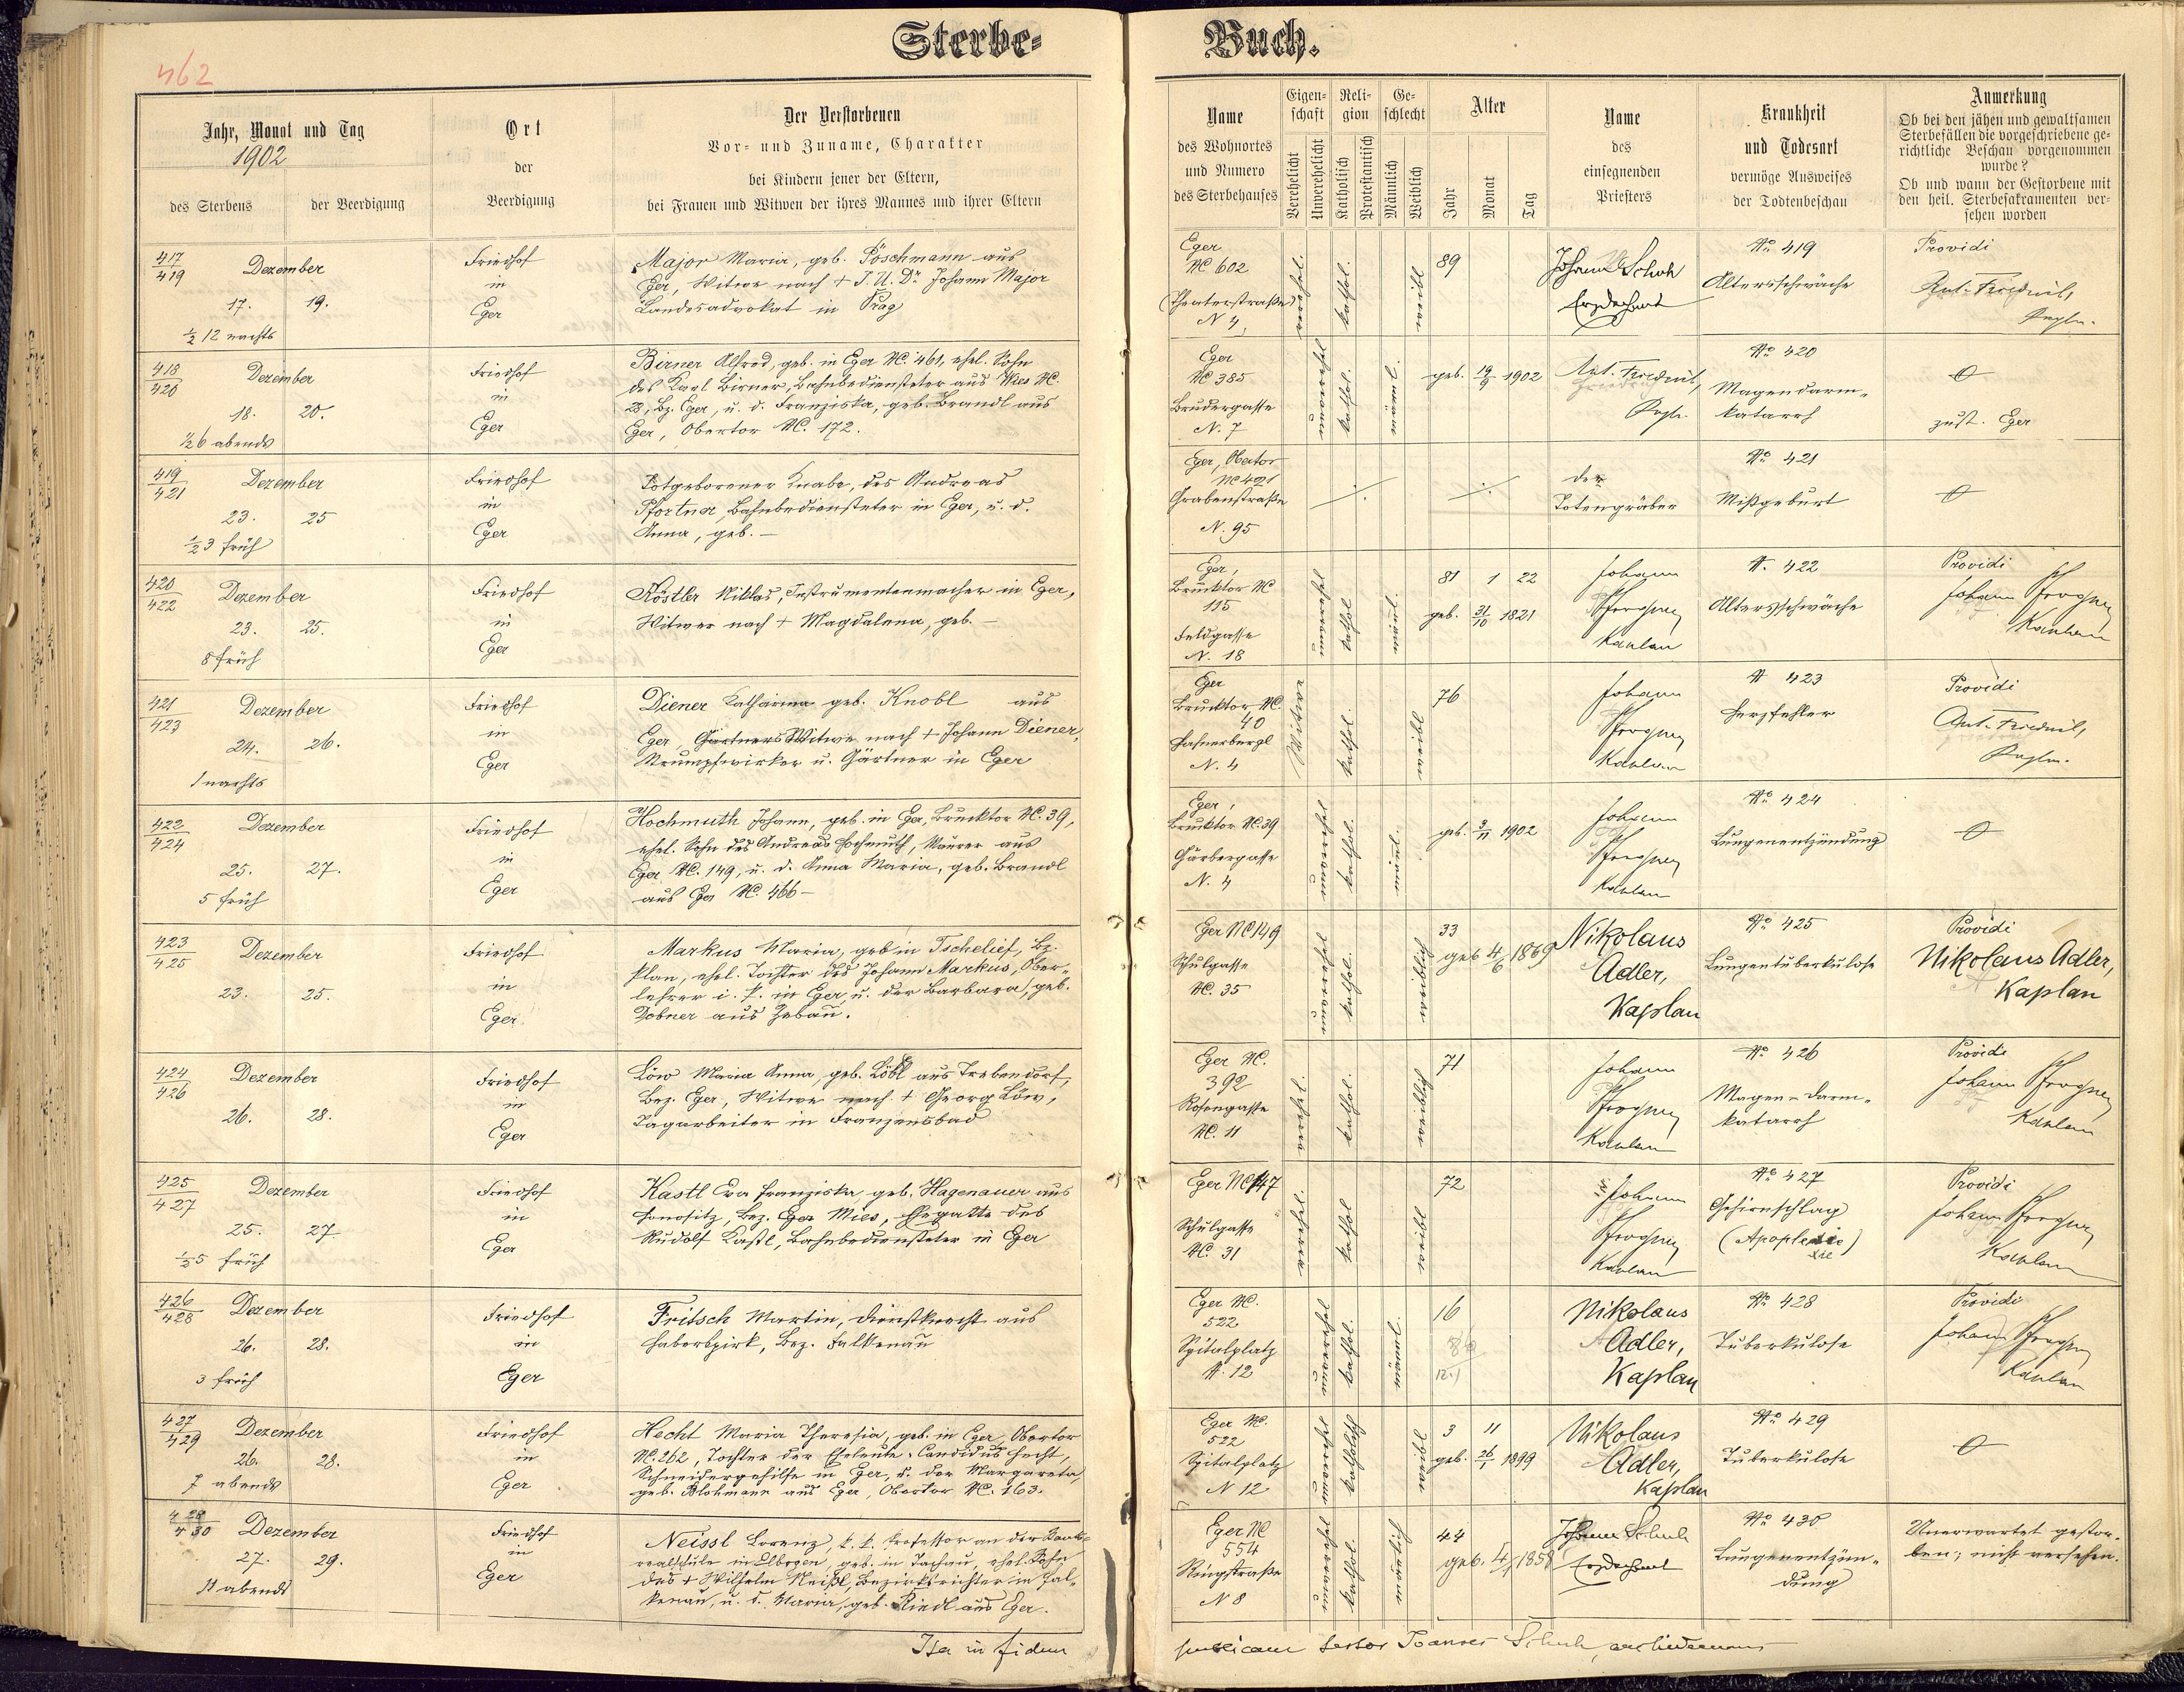 462
Sterbe-
Buch.
Jahr, Monat und Tag
1902
des Sterbens
der Beerdigung
Ort
der
Beerdigung
Der Verstorbenen
Vor- und Zuname, Charakter
bei Kindern jener der Eltern,
bei Frauen und Witwen der ihres Mannes und ihrer Eltern
Name
des Wohnortes
und Numero
des Sterbehauses
Eigen-
schaft
Verehelicht
Unverehelicht
Reli-
gion
Katholisch
Protestantisch
Ge-
schlecht
Männlich
Weiblich
Alter
Jahr
Monat
Tag
Name
des
einsegnenden
Priesters
Krankheit
und Todesart
vermöge Ausweises
der Todtenbeschau
Anmerkung
Ob bei den jähen und gewaltsamen
Sterbefällen die vorgeschriebene ge-
richtliche Beschau vorgenommen
wurde?
Ob und wann der Gestorbene mit
den heil. Sterbesakramenten ver-
sehen worden
417
419
Dezember
17. 19.
½ 12 nachts
Friedhof
in
Eger
Major Maria, geb. Pöschmann aus
Eger, Witwe nach + J. U. Dr. Johann Major
Landesadvokat in Prag
Eger
NC 602
(Theaterstraße)
N 4
verehel.
kathol.
weibl
89
Johann Schuh
Erzdechant
No 419
Altersschwäche
Providi
Ant. Friedrich,
418
420
Dezember
18. 20.
½6 abends
Friedhof
in
Eger
Birner Alfred, geb. in Eger NC. 461, ehel. Sohn
des Karl Birner, Bahnbediensteter aus Wies NC.
28, Bz. Eger, u. d. Franziska, geb. Brandl aus
Eger, Obertor NC. 172.
Eger
NC 385
Brudergasse
N. 7
unverehel
kathol.
männl.
geb. 19/9 1902
No 420
Magendarm-
katarrh
zust. Eger
419
421
Dezember
23. 25
½3 früh
Friedhof
in
Eger
Totgeborener Knabe, des Andreas
Pfortner, Bahnbediensteter in Eger, u. d.
Anna, geb. –
Eger, Obertor
NC 421
Grabenstraße
N. 95
der
Totengräber
No 421
Mißgeburt
420
422
Dezember
23. 25.
8 früh
Friedhof
in
Eger
Köstler Niklas, Instrumentenmacher in Eger,
Witwer nach + Magdalena, geb. –
Eger,
Brucktor NC
115
Feldgasse
N. 18
unverehel
kathol
männl.
81 1 22
geb. 31/10 1821
Johann
Pfrogner
Kaplan
N. 422
Altersschwäche
Providi
Johann Pfrogner
Kaplan
421
423
Dezember
24. 26.
1 nachts
Friedhof
in
Eger
Diener Katharina geb. Knobl aus
Eger, Gärtners Witwe nach + Johann Diener,
Strumpfwirker u. Gärtner in Eger
Eger
Brucktor NC.
40
Hafnerbergl
N. 4
Witwe
kathol.
weibl
76
Johann
Pfrogner
Kaplan
N 423
Herzfehler
Providi
Ant. Friedrich,
422
424
Dezember
25. 27.
5 früh
Friedhof
in
Eger
Hochmuth Johann, geb. in Eger, Brucktor NC. 39,
ehel. Sohn des Andreas Hochmuth, Maurer aus
Eger NC. 149, u. d. Anna Maria, geb. Brandl
aus Eger NC. 466 –
Eger,
Brucktor NC. 39
Gärbergasse
N. 4
unverehel
kathol.
männl.
geb. 3/11 1902
Johann
Pfrogner
Kaplan
No 424
Lungenentzündung
423
425
Dezember
23. 25.
Friedhof
in
Eger
Markus Maria, geb in Tschelief, Bz.
Plan, ehel. Tochter des Johann Markus, Ober-
lehrer i. P. in Eger, u. der Barbara, geb.
Dobner aus Zebau.
Eger NC 149
Schulgasse
NC. 35
unverehel
kathol.
weiblich
33
geb 4/6 1869
Nikolaus
Adler,
Kaplan
No 425
Lungentuberkulose
Providi
Nikolaus Adler,
Kaplan
424
426
Dezember
26. 28.
Friedhof
in
Eger
Löw Maria Anna, geb. Löbl aus Trebendorf,
Bez. Eger, Witwe nach + Georg Löw,
Tagarbeiter in Franzensbad
Eger NC.
392
Rosengasse
NC. 11
verehel.
kathol.
weiblich
71
Johann
Pfrogner
Kaplan
No 426
Magen-darm-
katarrh
Providi
Johann Pfrogner
Kaplan
425
427
Dezember
25. 27
½5 früh
Friedhof
in
Eger
Kastl Eva Franziska, geb. Hagenauer aus
Honositz, Bez. Eger Mies, Ehegatte des
Rudolf Kastl, Bahnbediensteter in Eger
Eger NC 147
Schulgasse
NC. 31
verehel.
kathol
weibl
72
Johann
Pfrogner
Kaplan
No 427
Gehirnschlag
(Apoplexie)
xie
Providi
Johann Pfrogner
Kaplan
426
428
Dezember
26. 28.
3 früh
Friedhof
in
Eger
Fritsch Martin, Dienstknecht aus
Haberspirk, Bez. Falkenau
Eger NC.
522
Spitalplatz
N. 12
unverehel
kathol.
männl.
16
Nikolaus
Adler,
Kaplan
No 428
Tuberkulose
Providi
Johann Pfrogner
Kaplan
427
429
Dezember
26. 28.
7 abends
Friedhof
in
Eger
Hecht Maria Theresia, geb. in Eger, Obertor
NC. 262, Tochter der Eheleute: Candidus Hecht,
Schneidergehilfe in Eger, u. der Margareta,
geb. Blohmann aus Eger, Obertor NC. 163.
Eger NC.
522
Spitalplatz
N 12
unverehel
katholisch
weibl
3 11
geb. 26/1 1899
Nikolaus
Adler,
Kaplan
No 429
Tuberkulose
428
430
Dezember
27. 29.
11 abends
Friedhof
in
Eger
Neissl Lorenz, k. k. Professor an der Staats-
realschule in Elbogen, geb. in Tachau, ehel. Sohn
des + Wilhelm Neißl, Bezirksrichter in Fal-
kenau, u. d. Maria, geb. Riedl aus Eger.
Eger NC
554
Ringstraße
N 8
unverehel
kathol.
männlich
44
geb. 1858
Johann Schuh
Erzdechant
No 430
Lungenentzün-
dung
Unerwartet gestor-
ben; nicht versehen.
Ita in fidem
testor Joannes Schuh, archidecanus